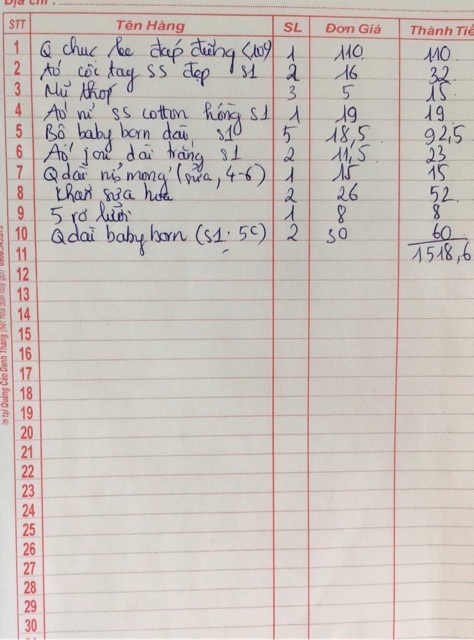 Địa chỉ :
STT Tên Hàng SL Đơn Giá Thành Tiề
1 Q chuc bee đạp đường (109) 1 110 110
2 Aó cộc tay SS đẹp S1 2 16 32
3 Mũ thóp 3 5 15
4 Aó nỉ SS cotton hồng S1 1 19 19
5 Bộ baby born dài S1 5 18,5 92,5
6 Aó jou dài trắng S1 2 11,5 23
7 Q dài nỉ mong (sữa, 4-6) 1 15 15
8 Khăn sữa hoa 2 26 52
9 5 rơ lưỡi 1 8 8
10 Q dài baby born (S1. 5c) 2 30 60
11 1518,6
12
13
14
15
16
17
18
19
20
21
22
23
24
25
26
27
28
29
30
In tại Quảng Cáo Danh Thắng